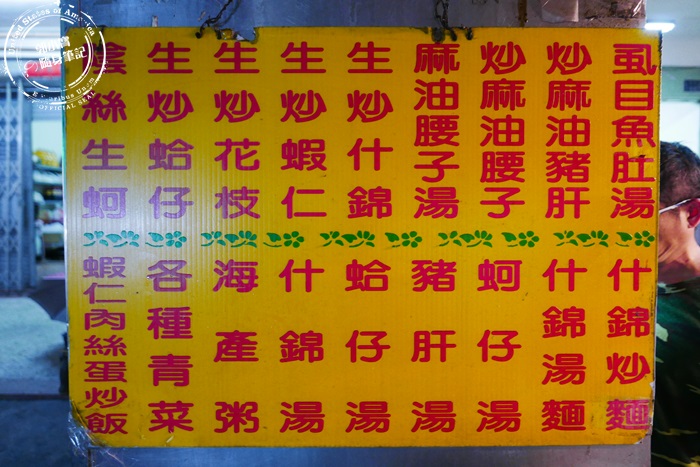 虱目魚肚湯
炒麻油豬肝
炒麻油腰子
麻油腰子湯
生炒什錦
生炒蝦仁
生炒花枝
生炒蛤仔
絲生蚵
什錦炒麵
什錦湯麵
蚵仔湯
豬肝湯
蛤仔湯
什錦湯
海產粥
各種青菜
蝦仁肉絲蛋炒飯
United States of America
隨身筆記
E Pluribus Unum
OFFICIAL SEAL